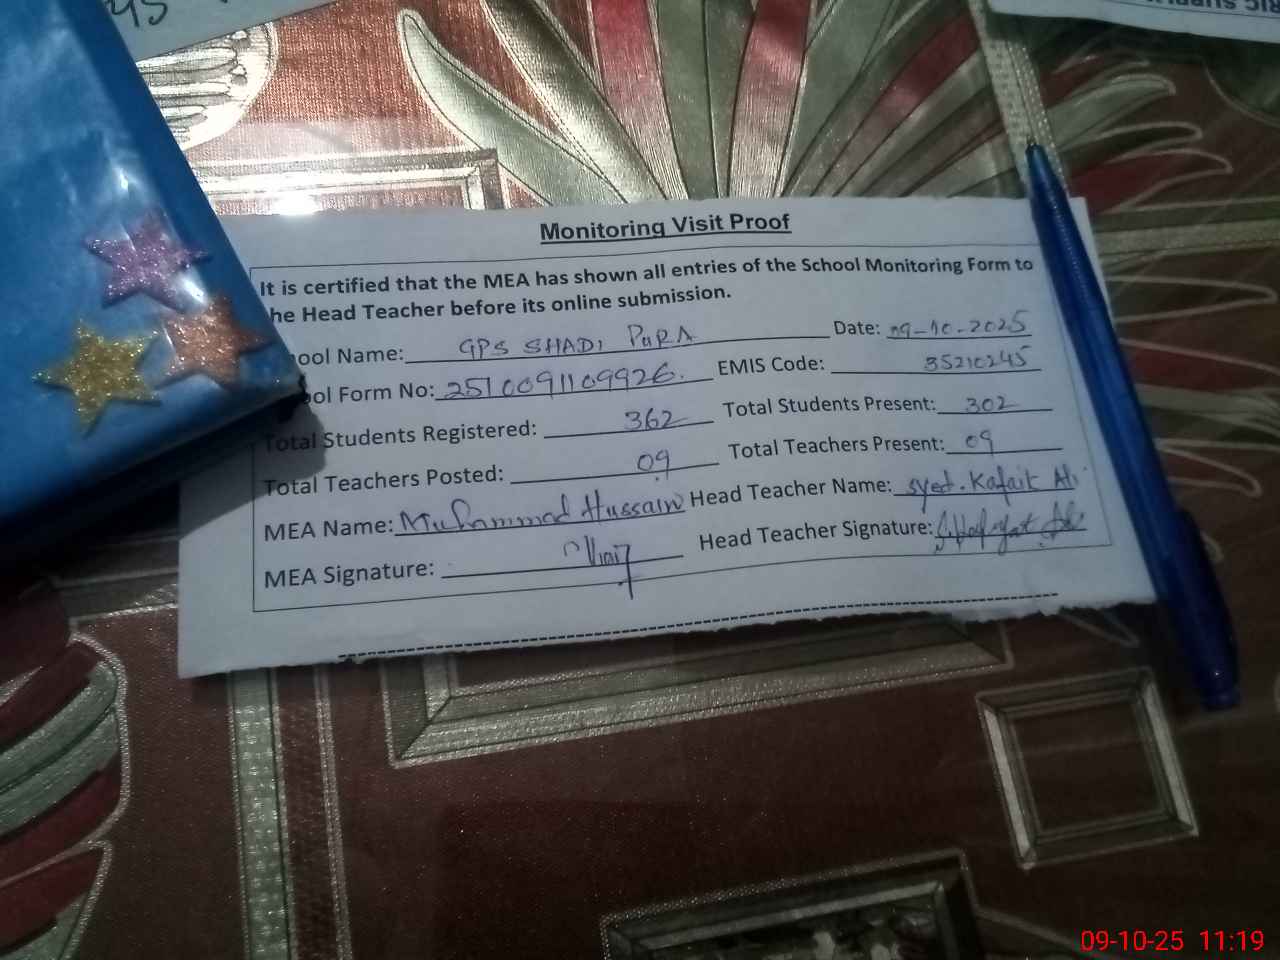 45
Monitoring Visit Proof
It is certified that the MEA has shown all entries of the School Monitoring Form to
he Head Teacher before its online submission.
ool Name: GPS SHADI PURA Date: 09-10-2025
ol Form No: 2510091109926. EMIS Code: 35210245
Total Students Registered: 362 Total Students Present: 302
Total Teachers Posted: 09 Total Teachers Present: 09
MEA Name: Muhammad Hussain Head Teacher Name: Syed. Kafait Ali
MEA Signature: Head Teacher Signature:
09-10-25 11:19